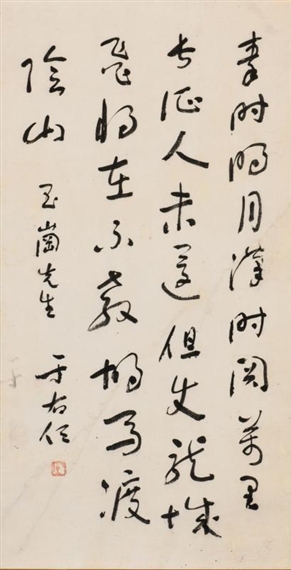 秦时明月汉时关万里
长征人未还但使龙城
飞将在不教胡马渡
阴山
玉崗先生
于右任